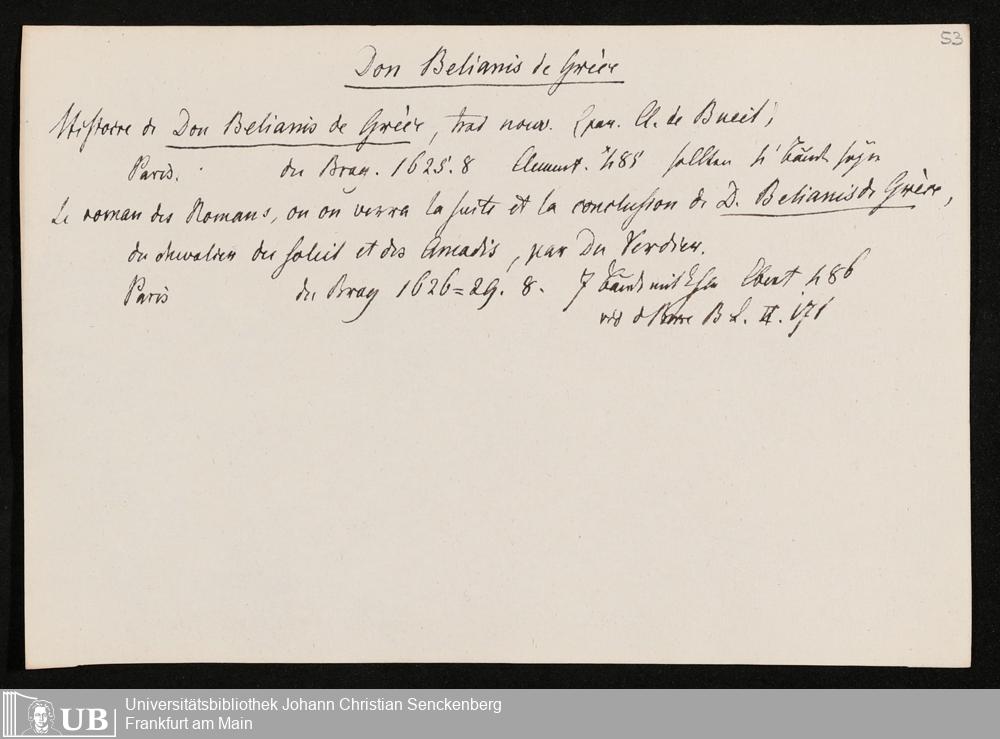 53
Don Belianis de Grèce
Histoire de Don Belianis de Grèce, trad nouv. (par. Cl. de Bueil)
Paris. du Bray. 1625. 8 485 sollten 4 Bände seyn
Le roman des Romans, ou on verra la suite et la conclusion de D. Belianis de Grèce,
du chevalier du soleil et des Amadis, par Du Verdier.
Paris du Bray 1626=29. 8. 7 Bände mit Ebert 486
vid B L. II. 171
Universitätsbibliothek Johann Christian Senckenberg
Frankfurt am Main
UB